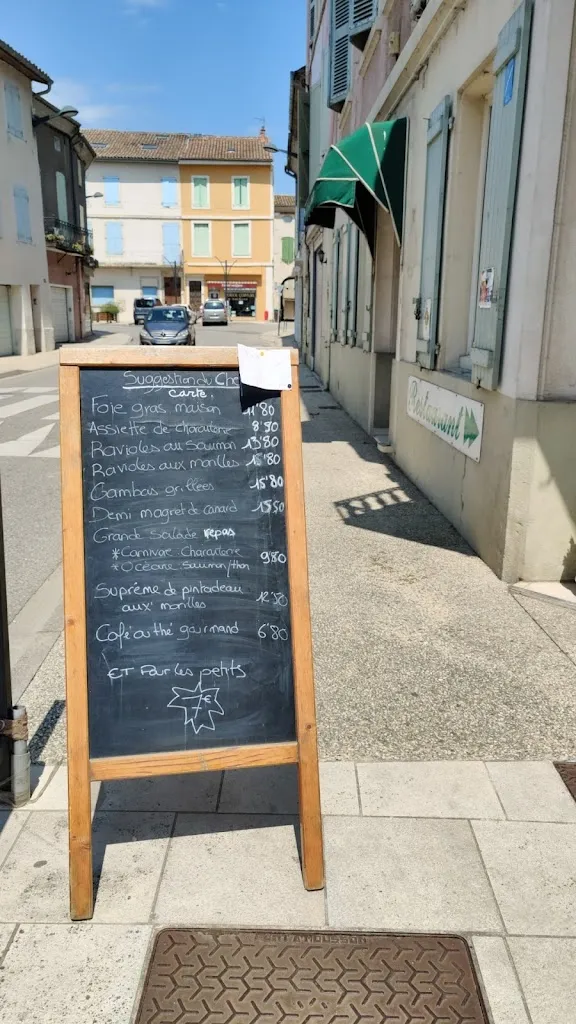 Suggestion du Che
carte.
Foie gras maison 11'80
Assiette de charcuterie 8'50
Ravioles au Saumon 13'80
Ravioles aux morilles 15'80
Gambas grillées 15'80
Demi magret de canard 15'50
Grande Salade repas
*Carnivore Charcuterie 9'80
*Océane saumon/thon
Suprême de pintadeau 12'50
aux morilles
Café ou thé gourmand 6'80
ET Pour les petits
7€
Restaurant
PONT A MOUSSON